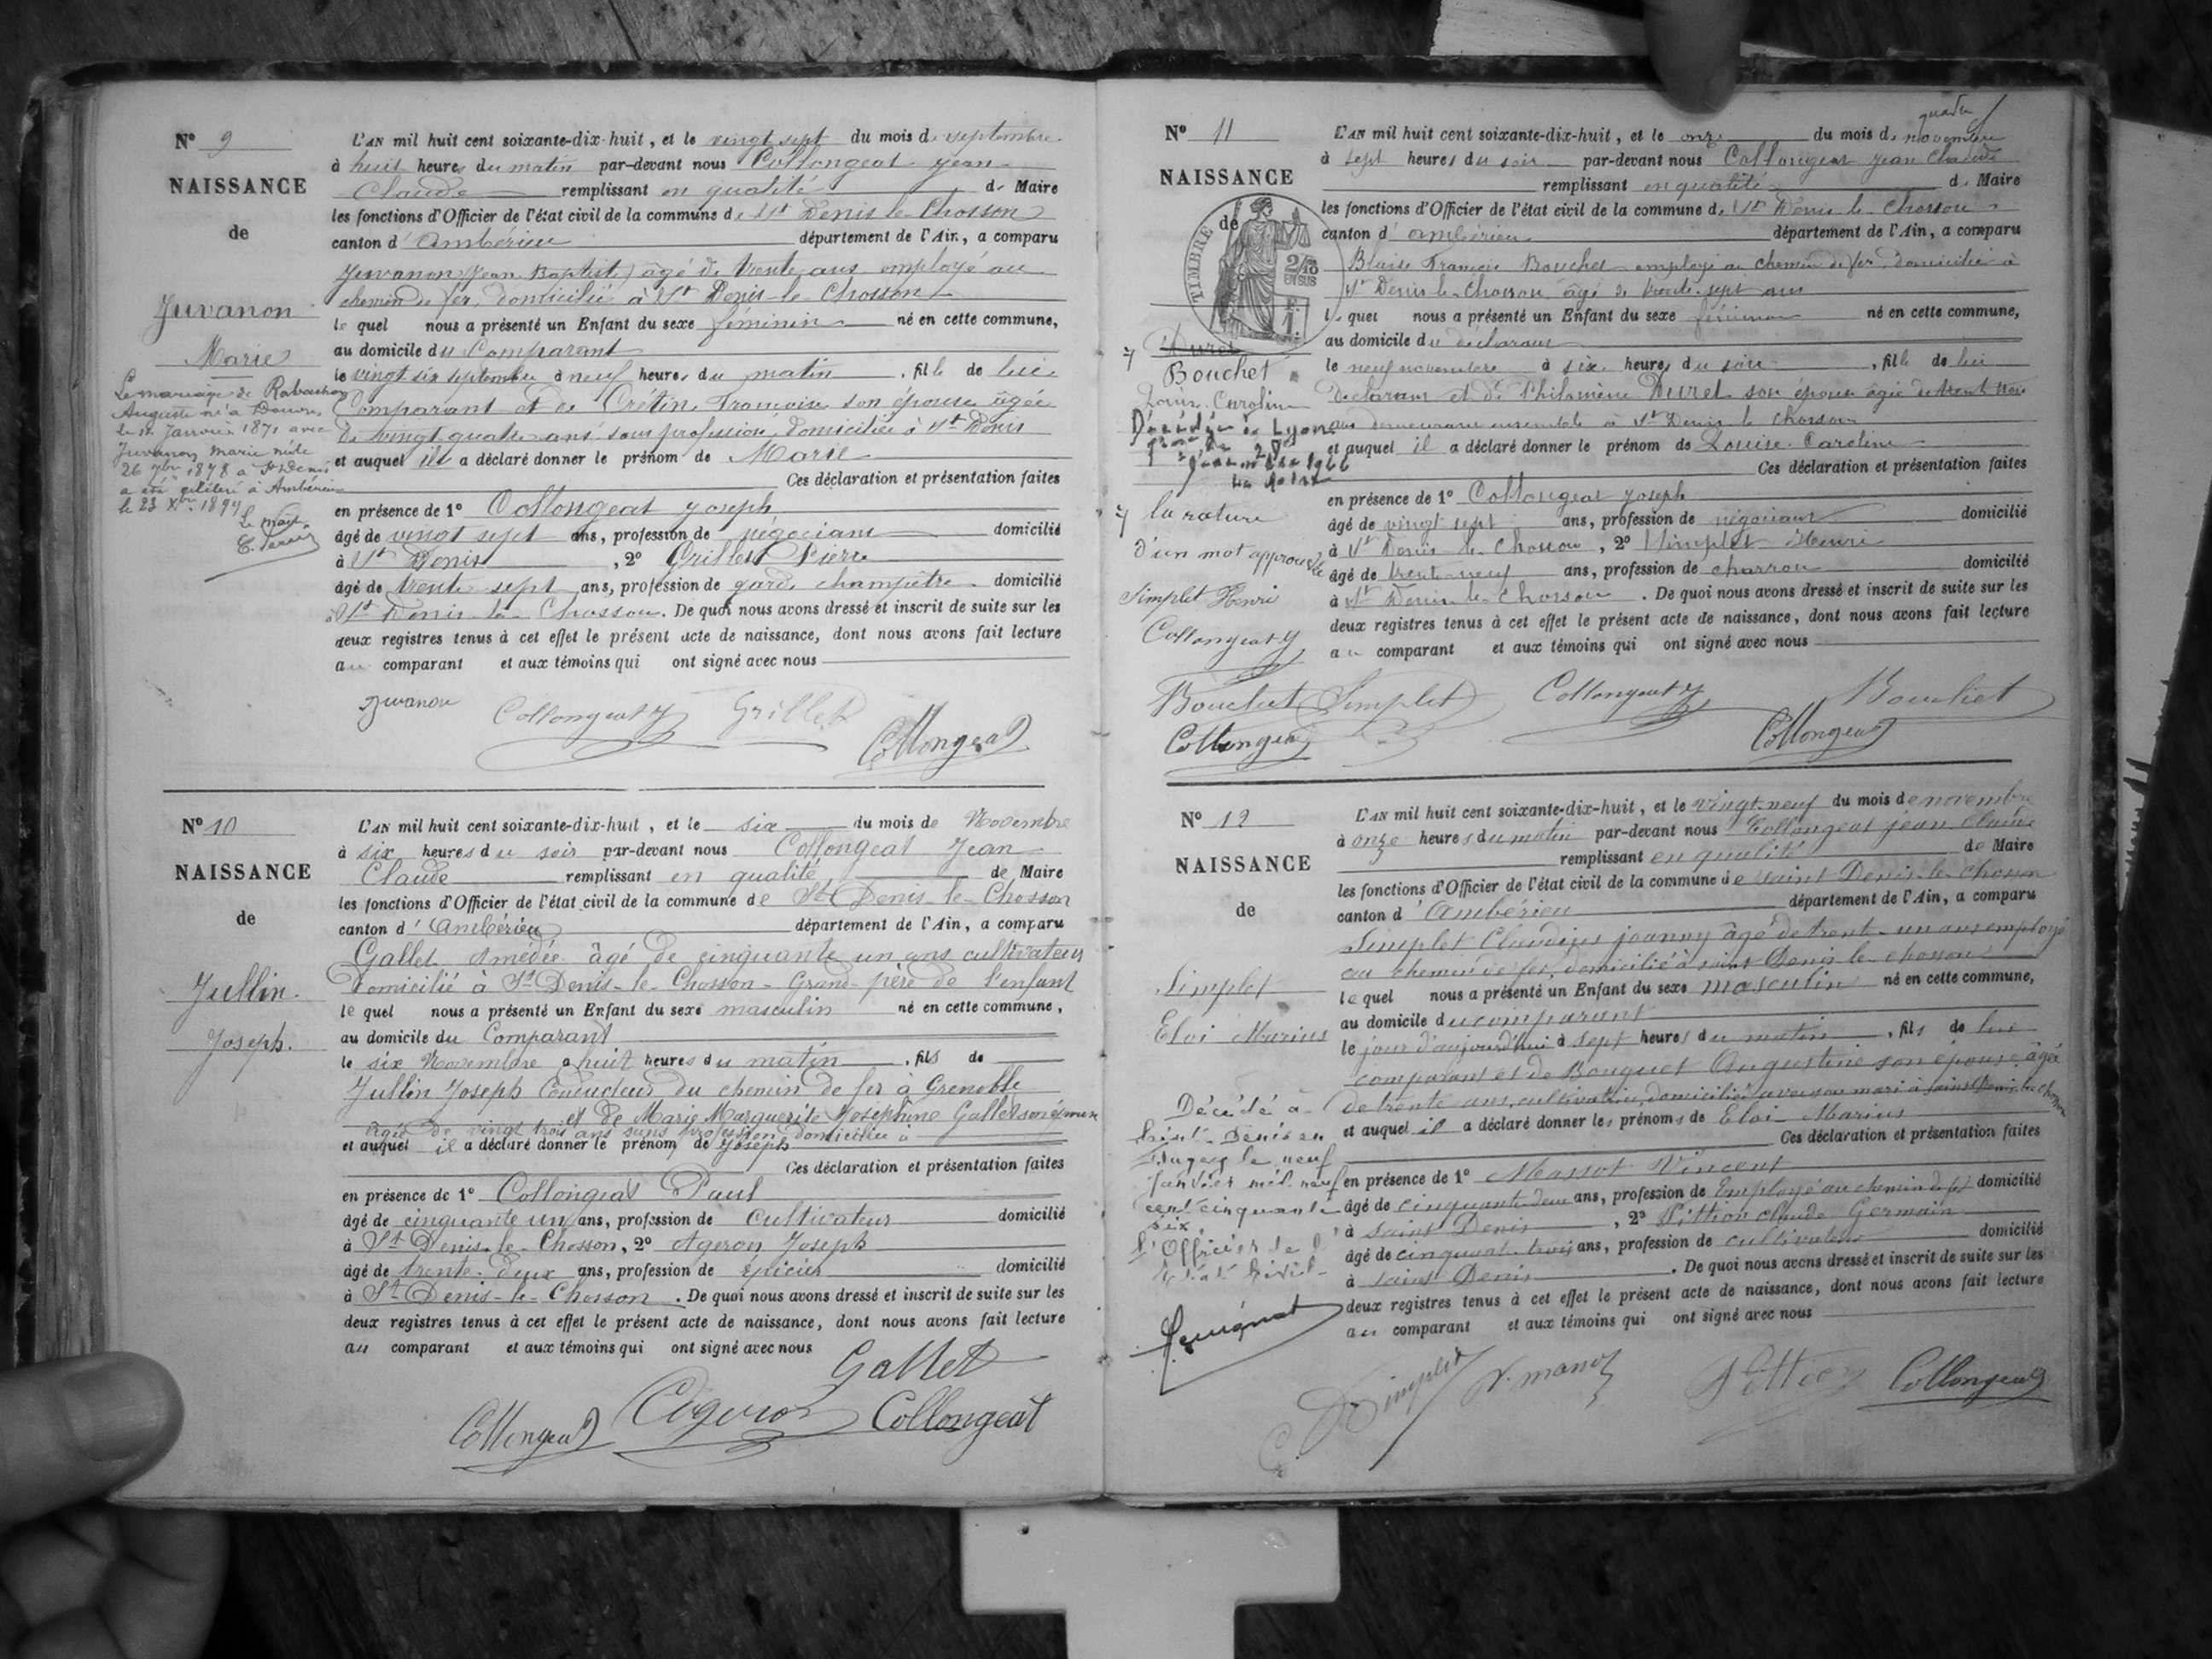 N° 9
NAISSANCE
de
Juvanon
Marie
Le mariage de Rabachon
Auguste né à Douvres
le 11 Janvier 1871 avec
Juvanon Marie née le
26 7bre 1878 à St Denis
a été célébré à Ambérieu
le 23 Xbre 1899
Le maire
L'AN mil huit cent soixante-dix-huit, et le vingt sept du mois de septembre
à huit heures du matin par-devant nous Collongeat Jean
Claude remplissant en qualité de Maire
les fonctions d'Officier de l'état civil de la commune de St Denis le Chosson
canton d'Ambérieu département de l'Ain, a comparu
Juvanon (Jean Baptiste) âgé de trente ans employé au
chemin de fer, domicilié à St Denis-le-Chosson
lequel nous a présenté un Enfant du sexe féminin né en cette commune,
au domicile du Comparant
le vingt six septembre à neuf heures du matin, fille de lui
Comparant et de Crétin Françoise son épouse âgée
de vingt quatre ans sans profession, domiciliée à St Denis
et auquel il a déclaré donner le prénom de Marie
Ces déclaration et présentation faites
en présence de 1° Collongeat Joseph
âgé de vingt sept ans, profession de négociant domicilié
à St Denis, 2° Grillet Pierre
âgé de trente sept ans, profession de garde champêtre domicilié
à St Denis le Chosson. De quoi nous avons dressé et inscrit de suite sur les
deux registres tenus à cet effet le présent acte de naissance, dont nous avons fait lecture
au comparant et aux témoins qui ont signé avec nous
Juvanon Collongeat J Grillet
Collongeat
N° 10
NAISSANCE
de
Jullin
Joseph.
L'AN mil huit cent soixante-dix-huit, et le six du mois de Novembre
à six heures du soir par-devant nous Collongeat Jean
Claude remplissant en qualité de Maire
les fonctions d'Officier de l'état civil de la commune de St Denis-le-Chosson
canton d'Ambérieu département de l'Ain, a comparu
Gallet Amédée âgé de cinquante un ans cultivateur
Domicilié à St Denis-le-Chosson - Grand-père de l'enfant
lequel nous a présenté un Enfant du sexe masculin né en cette commune,
au domicile du Comparant
le six Novembre à huit heures du matin, fils de
Jullin Joseph Conducteur du chemin de fer à Grenoble
et de Marie Marguerite Joséphine Gallet son épouse
âgée de vingt trois ans sans profession domiciliée à
et auquel il a déclaré donner le prénom de Joseph
Ces déclaration et présentation faites
en présence de 1° Collongeat Paul
âgé de cinquante un ans, profession de Cultivateur domicilié
à St Denis-le-Chosson, 2° Ageron Joseph
âgé de trente-deux ans, profession de épicier domicilié
à St Denis-le-Chosson. De quoi nous avons dressé et inscrit de suite sur les
deux registres tenus à cet effet le présent acte de naissance, dont nous avons fait lecture
au comparant et aux témoins qui ont signé avec nous
Gallet
Collongeat Ageron Collongeat
N° 11
NAISSANCE
de
TIMBRE
2/10
EN SUS
F.
1.
Duret
Bouchet
Louise Caroline
Décédée à Lyon
1966
la rature
d'un mot approuvée
Simplet Henri
Collongeat J
quatre
L'AN mil huit cent soixante-dix-huit, et le onze du mois de novembre
à sept heures du soir par-devant nous Collongeat Jean Claude
remplissant en qualité de Maire
les fonctions d'Officier de l'état civil de la commune de St Denis le Chosson
canton d'ambérieu département de l'Ain, a comparu
Blaise François Bouchet employé au chemin de fer, domicilié à
St Denis-le-Chosson âgé de trente-sept ans
lequel nous a présenté un Enfant du sexe féminin né en cette commune,
au domicile du déclarant
le neuf novembre à six heures du soir, fille de lui
déclarant et de Philomène Duret son épouse âgée de trente trois
ans demeurant ensemble à St Denis le chosson
et auquel il a déclaré donner le prénom de Louise Caroline
Ces déclaration et présentation faites
en présence de 1° Collongeat Joseph
âgé de vingt sept ans, profession de négociant domicilié
à St Denis le Chosson, 2° Simplet Henri
âgé de trente neuf ans, profession de charron domicilié
à St Denis le Chosson. De quoi nous avons dressé et inscrit de suite sur les
deux registres tenus à cet effet le présent acte de naissance, dont nous avons fait lecture
au comparant et aux témoins qui ont signé avec nous
Bouchet Simplet Collongeat J Bouchet
Collongeat Collongeat
N° 12
NAISSANCE
de
Simplet
Eloi Marius
Décédé à
Saint-Denis en
Bugey le neuf
Janvier mil neuf
cent cinquante
six
L'Officier de l'
Etat Civil
L'AN mil huit cent soixante-dix-huit, et le vingt-neuf du mois de novembre
à onze heures du matin par-devant nous Collongeat Jean Claude
remplissant en qualité de Maire
les fonctions d'Officier de l'état civil de la commune de saint Denis-le-chosson
canton d'Ambérieu département de l'Ain, a comparu
Simplet Claudius joanny âgé de trent-un ans employé
au chemin de fer, domicilié à saint Denis le chosson
lequel nous a présenté un Enfant du sexe masculin né en cette commune,
au domicile du comparant
le jour d'aujourd'hui à sept heures du matin, fils de lui
comparant et de Bouquet Augustine son épouse âgée
de trente ans, cultivatrice, domiciliée avec son mari à saint Denis le chosson
et auquel il a déclaré donner les prénoms de Eloi Marius
Ces déclaration et présentation faites
en présence de 1° Massot Vincent
âgé de cinquante deux ans, profession de Employé au chemin de fer domicilié
à saint Denis, 2° Pittion claude Germain
âgé de cinquante trois ans, profession de cultivateur domicilié
à saint Denis. De quoi nous avons dressé et inscrit de suite sur les
deux registres tenus à cet effet le présent acte de naissance, dont nous avons fait lecture
au comparant et aux témoins qui ont signé avec nous
C. Simplet Pittion Collongeat